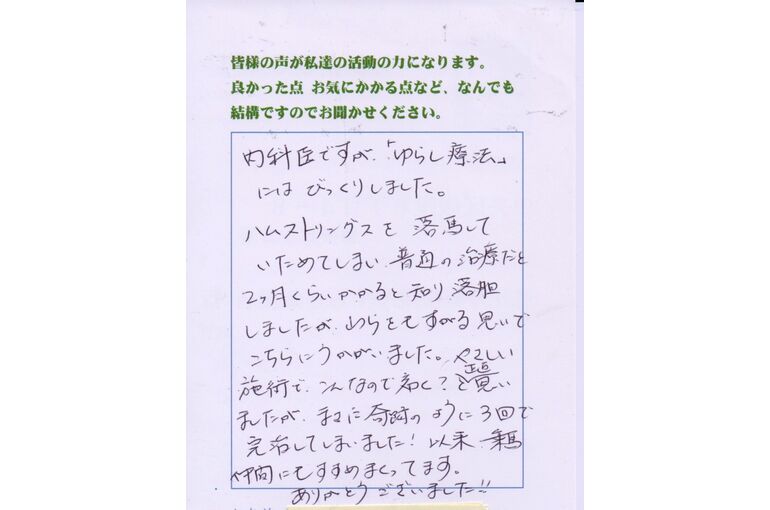 皆様の声が私達の活動の力になります。
良かった点 お気にかかる点など、なんでも
結構ですのでお聞かせください。
内科医ですが、「ゆらし療法」
にはびっくりしました。
ハムストリングスを落馬して
いためてしまい、普通の治療だと
2ヶ月くらいかかると知り落胆
しましたが、わらをもすがる思いで
こちらにうかがいました。やさしい
施術で、こんなので効く?と正直思い
ましたが、まさに奇跡のように3回で
完治してしまいました!以来、乗馬
仲間にもすすめまくってます。
ありがとうございました!!